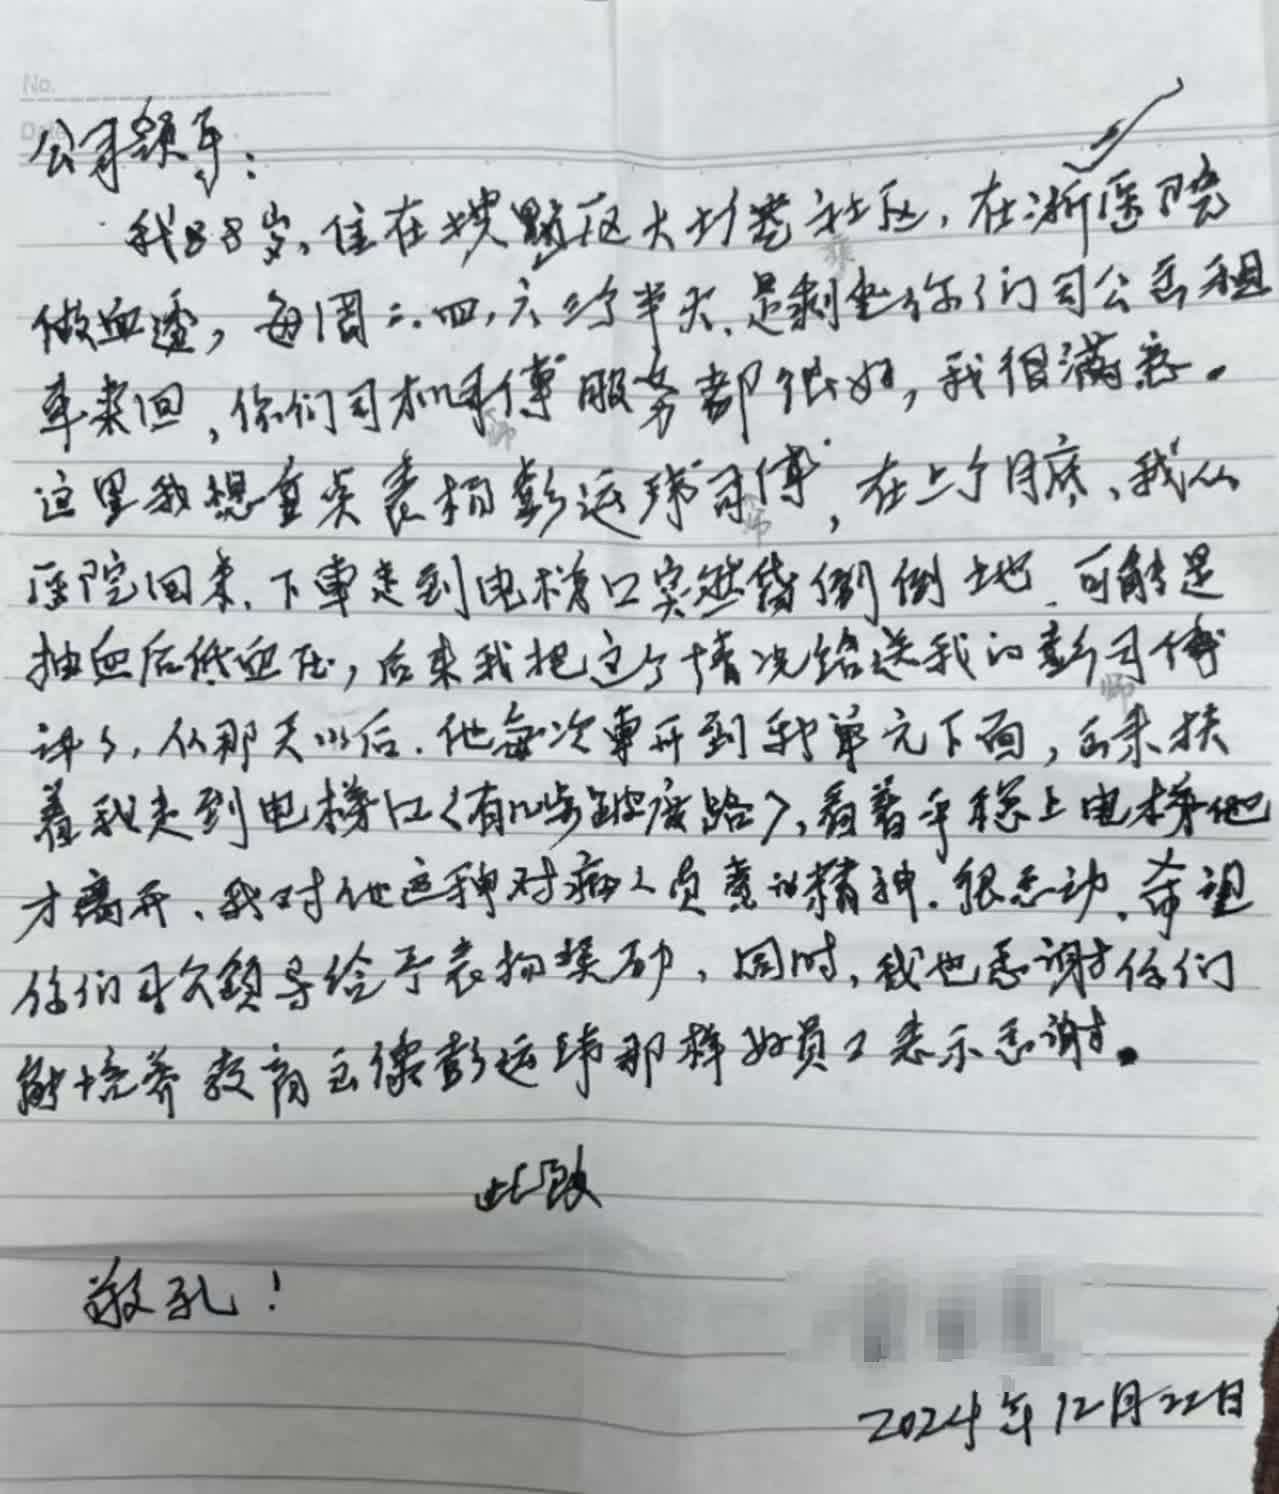 No.
Date
公司领导:
我88岁,住在拱墅区大塘巷社区,在浙医院
做血透,每周二.四,六三个半天.是剩坐你们司公出租
乘
车来回,你们司机司傅服务都很好,我很满意。
师
这里我想重点表扬彭运玮司傅,在上个月底、我从
师
医院回来.下車走到电梯口突然昏倒倒土地.可能是
抽血后低血压,后来我把这个情况给送我的彭司傅
师
讲了,从那天以后.他每次車开到我单元下面,出来扶
着我走到电梯口<有几步坡度路>,看着平稳上电梯他
才离开、我对他这种对病人负责的精神.很感动.希望
你们司公领导给予表扬奖励,同时,我也感谢你们
能培养教育出像彭运玮那样好员工表示感谢。
此致
敬礼!
2024年12月22日